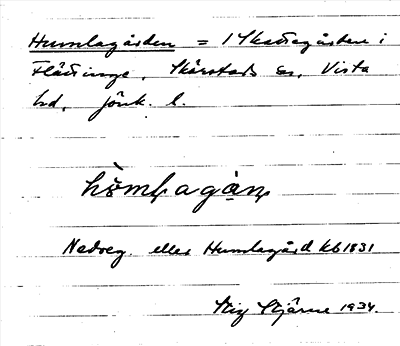 Humlagården = 1 Skattegården i
Flättinge, Skärstads sn, Vista
hd, Jönk. l.
hömlagån
Nedreg. eller Humlegård kb 1831
Stig Stjärne 1934.